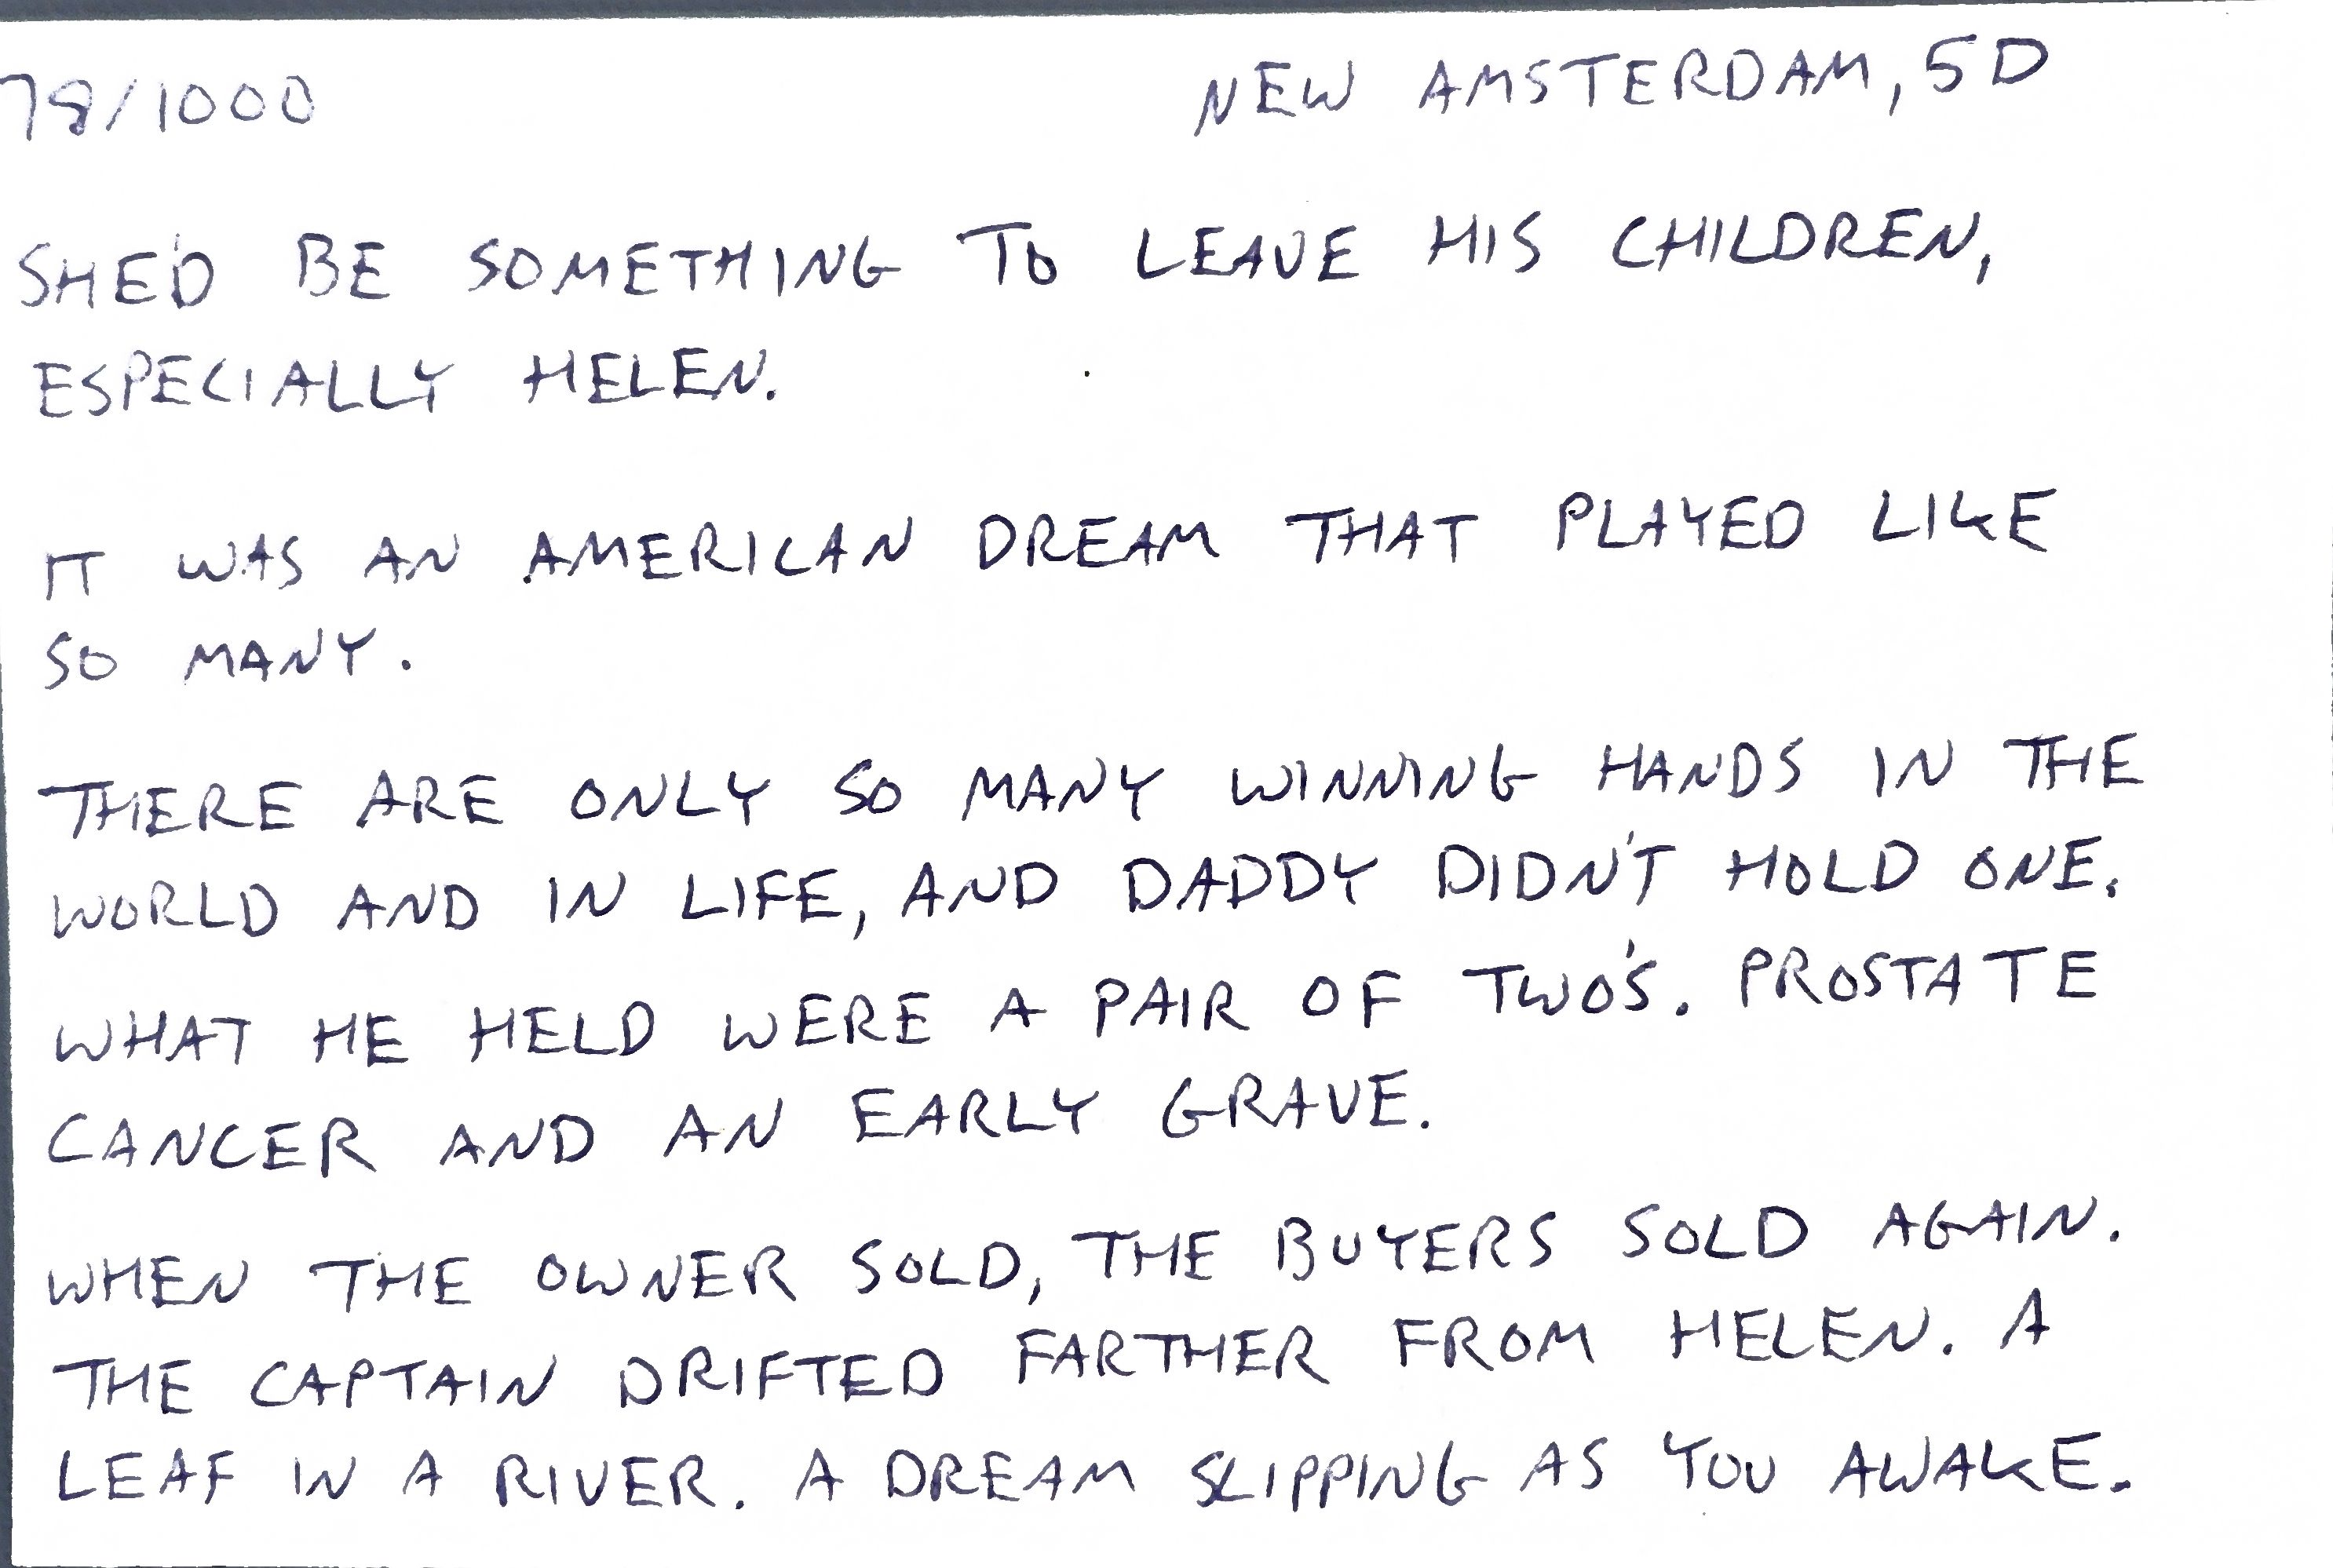 78/1000 NEW AMSTERDAM, SD
SHE'D BE SOMETHING TO LEAVE HIS CHILDREN,
ESPECIALLY HELEN.
IT WAS AN AMERICAN DREAM THAT PLAYED LIKE
SO MANY.
THERE ARE ONLY SO MANY WINNING HANDS IN THE
WORLD AND IN LIFE, AND DADDY DIDN'T HOLD ONE.
WHAT HE HELD WERE A PAIR OF TWO'S. PROSTATE
CANCER AND AN EARLY GRAVE.
WHEN THE OWNER SOLD, THE BUYERS SOLD AGAIN.
THE CAPTAIN DRIFTED FARTHER FROM HELEN. A
LEAF IN A RIVER. A DREAM SLIPPING AS YOU AWAKE.